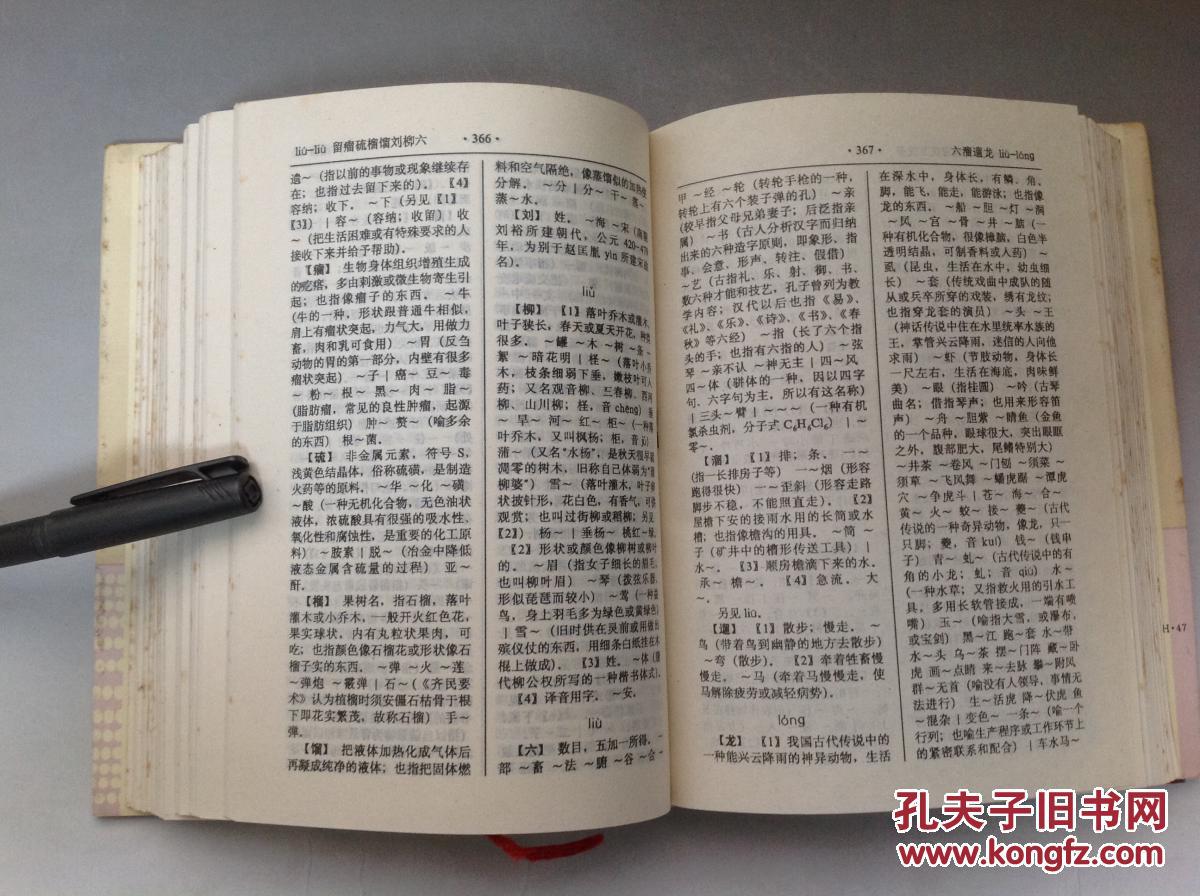 liú–liù 留瘤硫榴馏刘柳六 ·366·
遗～（指以前的事物或现象继续存
在；也指过去留下来的）。【4】
容纳；收下。～下（另见【1】
【3】）｜容～（容纳；收留）收
～（把生活困难或有特殊要求的人
接收下来并给于帮助）。
【瘤】 生物身体组织增殖生成
的疙瘩，多由刺激或微生物寄生引
起；也指像瘤子的东西。～牛
（牛的一种，形状跟普通牛相似，
肩上有瘤状突起，力气大，用做力
畜，肉和乳可食用）～胃（反刍
动物的胃的第一部分，内壁有很多
瘤状突起）～子｜癌～ 豆～ 毒
～ 粉～ 根～ 黑～ 肉～ 脂～
（脂肪瘤，常见的良性肿瘤，起源
于脂肪组织）肿～ 赘～（喻多余
的东西）根～菌。
【硫】 非金属元素，符号 S，
浅黄色结晶体，俗称硫磺，是制造
火药等的原料。～华 ～化 ～磺
～酸（一种无机化合物，无色油状
液体，浓硫酸具有很强的吸水性、
氧化性和腐蚀性，是重要的化工原
料）～胺素｜脱～（冶金中降低
液态金属含硫量的过程）亚～
酐。
【榴】 果树名，指石榴，落叶
灌木或小乔木，一般开火红色花，
果实球状，内有丸粒状果肉，可
吃；也指颜色像石榴花或形状像石
榴子实的东西。～弹 ～火 ～莲
～弹炮 ～霰弹｜石～（《齐民要
术》认为植榴时须安僵石枯骨于根
下即花实繁茂，故称石榴）手～
弹。
【馏】 把液体加热化成气体后
再凝成纯净的液体；也指把固体燃
料和空气隔绝，像蒸馏似的加热使
分解。～分｜分～ 干～ 蒸～
蒸～水。
【刘】 姓。～海 ～宋（南朝
刘裕所建朝代，公元 420–479
年，为别于赵匡胤 yìn 所建宋故
名）。
liǔ
【柳】 【1】落叶乔木或灌木，
叶子狭长，春天或夏天开花，种类
很多。～罐 ～木 ～树 ～条 ～
絮 ～暗花明｜柽～（落叶小乔
木，枝条细弱下垂，嫩枝叶可入
药；又名观音柳、三春柳、西河
柳、山川柳；柽，音 chēng）垂
～ 旱～ 河～ 红～ 柜～（一种落
叶乔木，又叫枫杨；柜，音 jǔ）
蒲～（又名“水杨”，是秋天很早就
凋零的树木，旧称自己体弱为“蒲
柳婆”）雪～（落叶灌木，叶子卵
状披针形，花白色，有香气，可供
观赏；也叫过街柳或稻柳；另见
【2】）杨～｜垂杨～ 桃红～绿。
【2】形状或颜色像柳树或柳叶
的。～眉（指女子细长的眉毛，
也叫柳叶眉）～琴（拨弦乐器，
形似琵琶而较小）～莺（一种益
鸟，身上羽毛多为绿色或黄绿色）
｜雪～（旧时供在灵前或用做出
殡仪仗的东西，用细条白纸挂在木
棍上做成）。【3】姓。～体（唐
代柳公权所写的一种楷书体式）。
【4】译音用字。～安。
liù
【六】 数目，五加一所得。～
部 ～畜 ～法 ～腑 ～谷 ～合
·367· 六溜遛龙 liù–lóng
甲 ～经 ～轮（转轮手枪的一种，
转轮上有六个装子弹的孔）～亲
（较早指父母兄弟妻子；后泛指亲
属）～书（古人分析汉字而归纳
出来的六种造字原则，即象形、指
事、会意、形声、转注、假借）
～艺（古指礼、乐、射、御、书、
数六种才能和技艺，孔子曾列为教
学内容；汉代以后也指《易》、
《礼》、《乐》、《诗》、《书》、《春
秋》等六经）～指（长了六个指
头的手；也指有六指的人）～弦
琴 ～亲不认 ～神无主｜四～风
四～体（骈体的一种，因以四字
句、六字句为主，所以有这名称）
｜三头～臂｜～～～（一种有机
氯杀虫剂，分子式 C₆H₆Cl₆）｜～
零～。
【溜】 【1】排；条。一～
（指一长排房子等）一～烟（形容
跑得很快）一～歪斜（形容走路
脚步不稳，不能照直走）。【2】
屋檐下安的接雨水用的长筒或水
槽；也指像檐沟的用具。～筒 ～
子（矿井中的槽形传送工具）｜
水～。【3】顺房檐滴下来的水。
承～ 檐～。【4】急流。大
～。
另见 liū。
【遛】 【1】散步；慢走。～
鸟（带着鸟到幽静的地方去散步）
～弯（散步）。【2】牵着牲畜慢
走。～马（牵着马慢慢走，使
马解除疲劳或减轻病势）。
lóng
【龙】 【1】我国古代传说中的
一种能兴云降雨的神异动物，生活
在深水中，身体长，有鳞、角、
脚，能飞，能走，能游泳；也指像
龙的东西。～船 ～胆 ～灯 ～洞
～风 ～宫 ～骨 ～井 ～脑（一
种有机化合物，很像樟脑，白色半
透明结晶，可制香料或人药）～
虱（昆虫，生活在水中，幼虫细
长）～套（传统戏曲中成队的随
从或兵卒所穿的戏装，绣有龙纹；
也指穿龙套的演员）～头 ～王
（神话传说中住在水里统率水族的
王，掌管兴云降雨，迷信的人向他
求雨）～虾（节肢动物，身体长
一尺左右，生活在海底，肉味鲜
美）～眼（指桂圆）～吟（古琴
曲名；借指琴声；也用来形容笛
声）～舟 ～胆紫 ～睛鱼（金鱼
的一个品种，眼球很大，突出眼眶
之外，腹部肥大，尾鳍特别大）
～井茶 ～卷风 ～门刨 ～须菜 ～
须草 ～飞凤舞 ～蟠虎踞 ～潭虎
穴 ～争虎斗｜苍～ 海～ 合～
黄～ 火～ 蛟～ 接～ 夔～（古代
传说的一种奇异动物，像龙，只一
只脚；夔，音 kuí）钱～（钱串
子）青～ 虬～（古代传说中的有
角的小龙；虬，音 qiú）水～
（一种水草；又指救火用的引水工
具，多用长软管接成，一端有喷
嘴）玉～（喻指大雪，或瀑布，
或宝剑）黑～江 跑～套 水～带
水～头 乌～茶 摆～门阵 藏～卧
虎 画～点睛 来～去脉 攀～附凤
群～无首（喻没有人领导，事情无
法进行）生～活虎 降～伏虎 鱼
～混杂｜变色～ 一条～（喻一个
行列；也喻生产程序或工作环节上
的紧密联系和配合）｜车水马～
H·47
孔夫子旧书网
www.kongfz.com